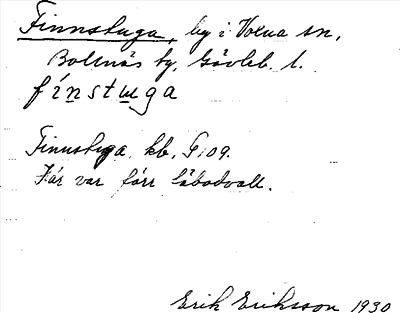 Finnstuga, by i Voxna sn,
Bollnäs tg, Gävleb. l.
fínstuga
Finnstuga, kb, G:09.
Här var förr läbodvall.
Erik Eriksson 1930